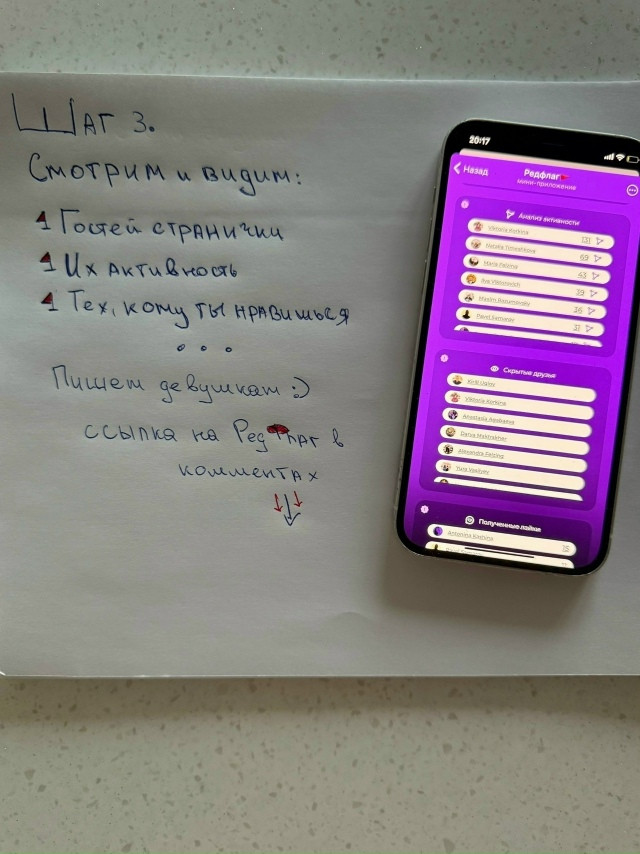 ШАГ 3.
Смотрим и видим:
Гостей странички
Их активность
Тех, кому ты нравишься
...
Пишет девушкам :)
ссылка на РедФлаг в
комментах
20:17
Назад
Редфлаг
мини-приложение
Анализ активности
Viktoria Korkina 131
69
Maria 43
39
26
Pavel 31
Скрытые друзья
Kirill
Viktoria Korkina
Anastasia
Darya
Alexandra
Yura
Полученные лайки
15